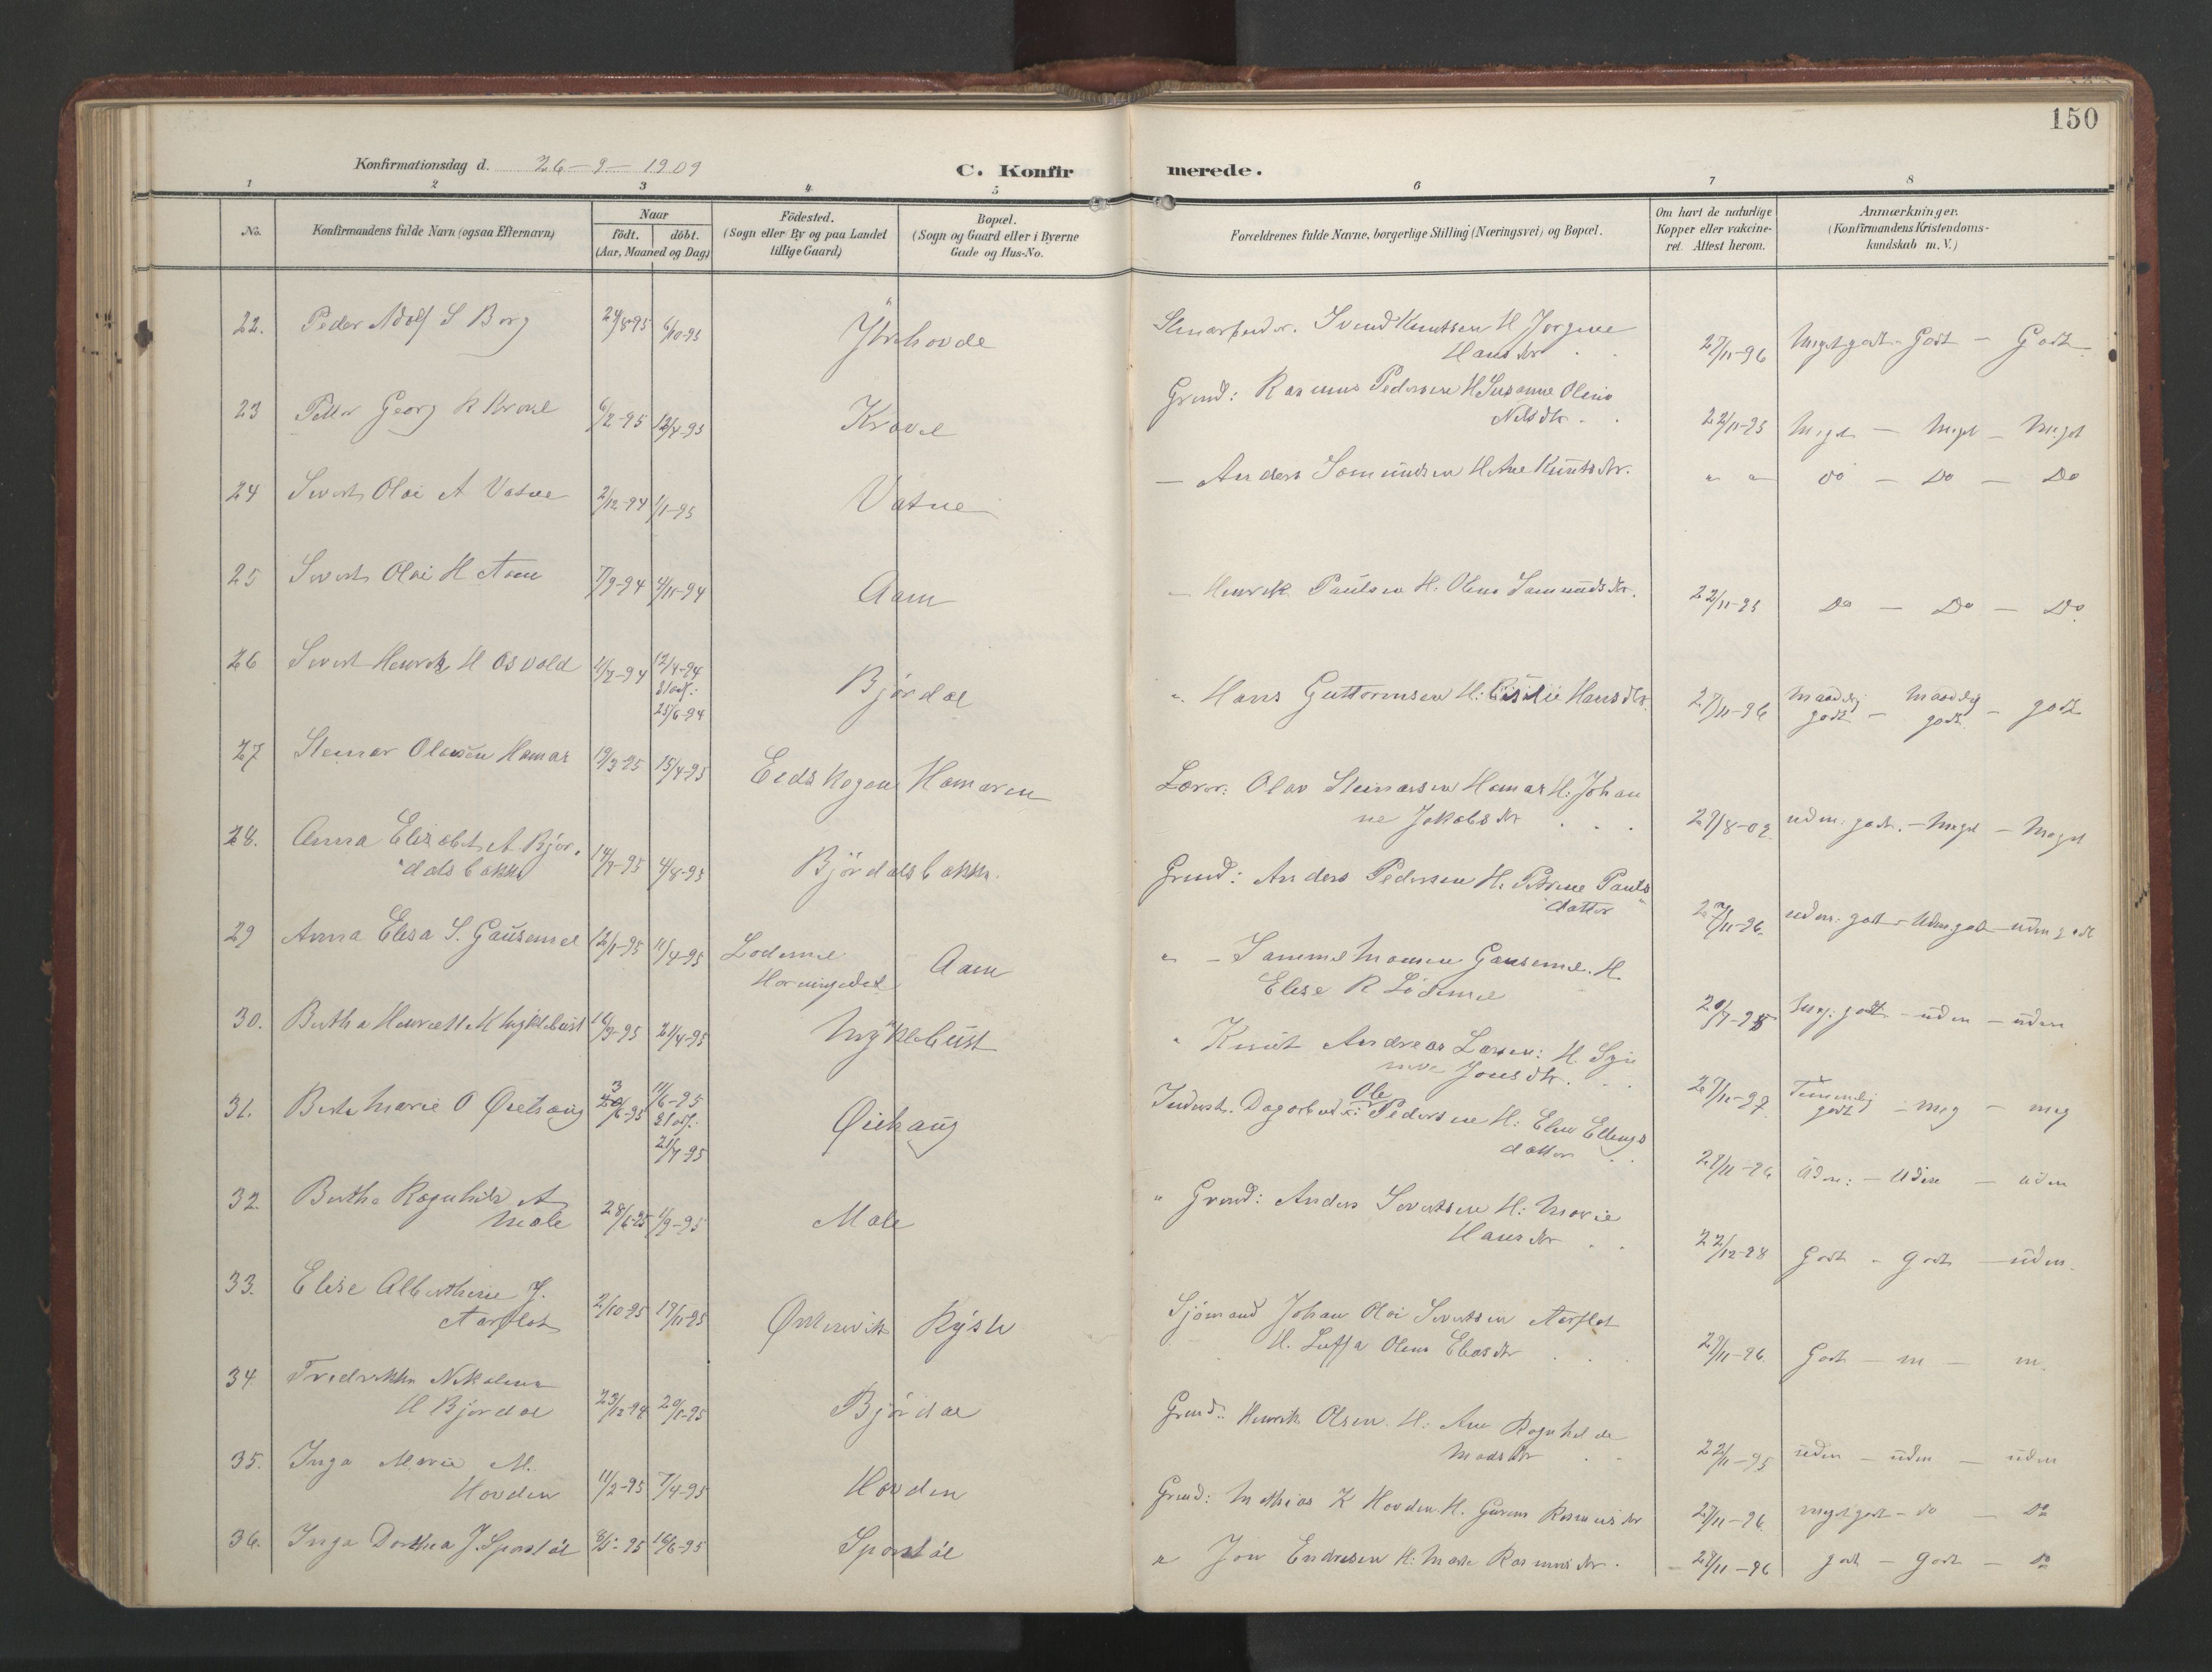 150
Konfirmationsdag d. 26-9-1909
C. Konfirmerede.
1 2 3 4 5 6 7 8
No.
Konfirmandens fulde Navn (ogsaa Efternavn)
Naar
födt. döbt.
(Aar, Maaned og Dag)
Födested.
(Sogn eller By og paa Landet
tillige Gaard)
Bopæl.
(Sogn og Gaard eller i Byerne
Gade og Hus-No.
Forældrenes fulde Navne, borgerlige Stilling (Næringsvei) og Bopæl.
Om havt de naturlige
Kopper eller vakcine-
ret. Attest herom.
Anmærkninger.
(Konfirmandens Kristendoms-
kundskab m. V.)
22. Peder Adolf S Borg 29/8-95 6/10-95 Ytrehovde Svend Knutsen H Jorgine
Hansdtr 27/11-96 Meget godt - Godt - Godt
23 Petter Georg R Krovel 6/2-95 12/4-95 Krovel Grmd: Rasmus Pedersen H Susanne Oline
Nilsdtr 22/11-95 Meget - Meget - Meget
24 Sivert Olai A Vatne 2/12-94 1/1-95 Vatne - Anders Samundsen H Ane Knutsdtr. " " Do - Do - Do
25 Sivert Olai H Aam 7/9-94 4/11-94 Aam - Henrik Paulsen H. Olene Samundsdtr. 22/11-95 Do - Do - Do
26 Sivert Henrik H Osvold 12/4-94
Stadf.:
25/6-94 Bjørdal " Hans Guttormsen H: Hansdtr. 27/11-96 maadelig
godt - maadelig
godt - godt
27 Steinar Olavsen Hamar 19/3-95 15/4-95 Eidskogen Hamaren Lærer: Olav Steinarsen Hamar H: Johan
ne Jakobsdtr 29/8-02 udm. godt. - Meget - Meget
28. Anna Elisabet A Bjør-
dalsbakke 14/7-95 4/8-95 Bjørdalsbakke. Grmd: Anders Pedersen H. Petrine Pauls
datter 27/11-96. udm: godt - Udm godt - udm godt
29 Anna Elisa S. Gausemel 12/1-95 11/4-95 Lødemel
Horningdal Aam " - Sammel Monsen Gausemel. H.
Elise R Lødemel Meg: godt - udm - udm
30. Bertha Henriette K Myklebust 21/4-95 Myklebust " Knut Andreas Larsen: H. Syn
nøve Jonsdtr. 27/11-97. Temmelig
godt - meg - meg
31. Berte Marie O Øiehaug 3/6-95 11/6-95
Stadf:
21/7-95 Øiehaug Inderst. Dagarbeider: Ole Pedersen H: Eline Ellings
datter 27/11-96 Udm: - Udm - udm
32. Bertha Ragnhild A
Mole 28/6-95 1/9-95 Mole " Grmd: Anders Sivertsen H: Marie
Hansdtr 22/12-98 Godt - Godt - udm.
33. Elise Albertine J.
Aarflot 2/10-95 17/11-95 Ørstenvik Rysti Sjømand Johan Olai Sivertsen Aarflot
H. Olene Eliasdtr 27/11-96. Godt - m - m.
34 Fredrikke Nikoline
H Bjørdal 23/12-94 20/1-95 Bjørdal Grmd: Henrik Olsen H: Ane Ragnhilde
Madsdtr 22/11-95 udm - udm - udm
35. Inga Marie M.
Hovden 11/2-95 7/4-95 Hovden Grmd: Mathias K Hovden H. Gurine Rasmusdtr 27/11-96. meget godt - do - Do
36. Inga Dorthea J. Sporstøl 8/5-95 16/6-95 Sporstøl " Jon Endresen H: Marte Rasmusdtr. - 27/11-96 godt - Godt - Do